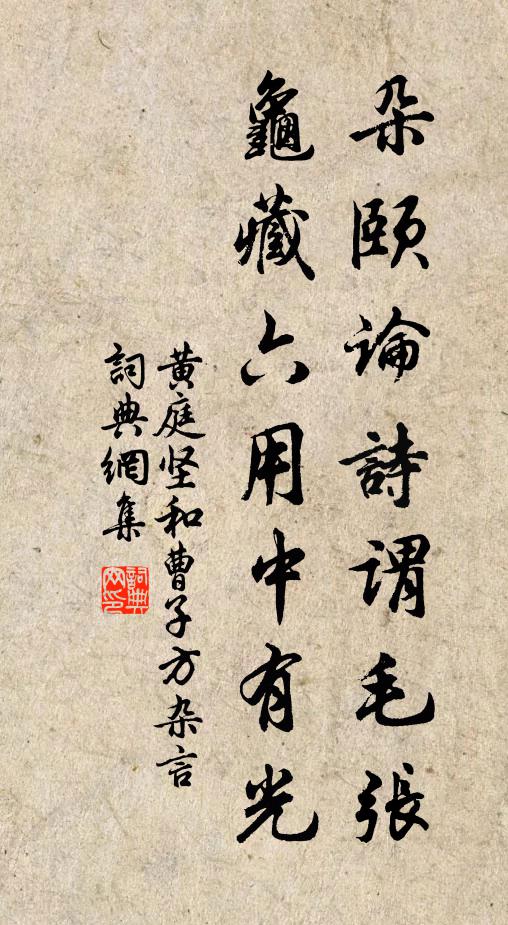 朵頤論詩謂毛張
龜藏六用中有光
黄庭坚和曹子方杂言
詞典網集
詞典網印